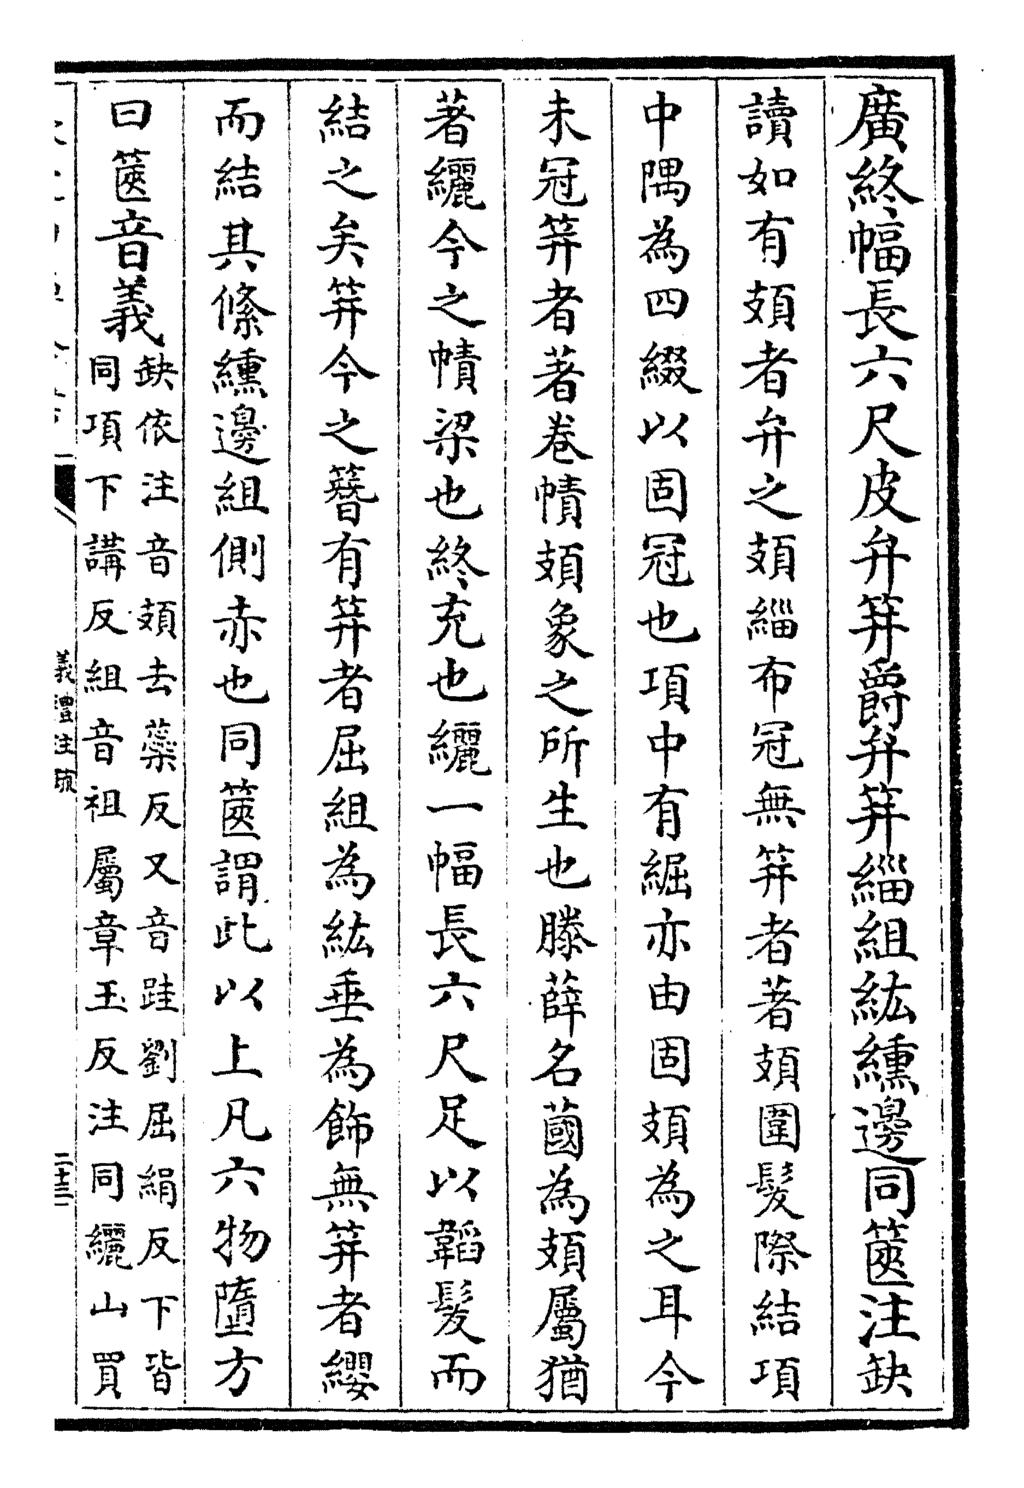 廣終幅長六尺皮弁筓爵弁筓緇組紘纁邊同篋注缺
讀如有頍者弁之頍緇布冠無筓者著頍圍髮際結項
中隅為四綴以固冠也項中有䋿亦由固頍為之耳今
未冠筓者著卷幘頍象之所生也滕薛名蔮為頍屬猶
著纚今之幘梁也終充也纚一幅長六尺足以韜髮而
結之矣筓今之簪有筓者屈組為紘垂為飾無筓者纓
而結其絛纁邊組側赤也同篋謂此以上凡六物隋方
曰篋音義
缺依注音頍去蘂反又音跬劉屈絹反下皆
同項下講反組音祖屬章玉反注同纚山買
義禮注疏
二十三